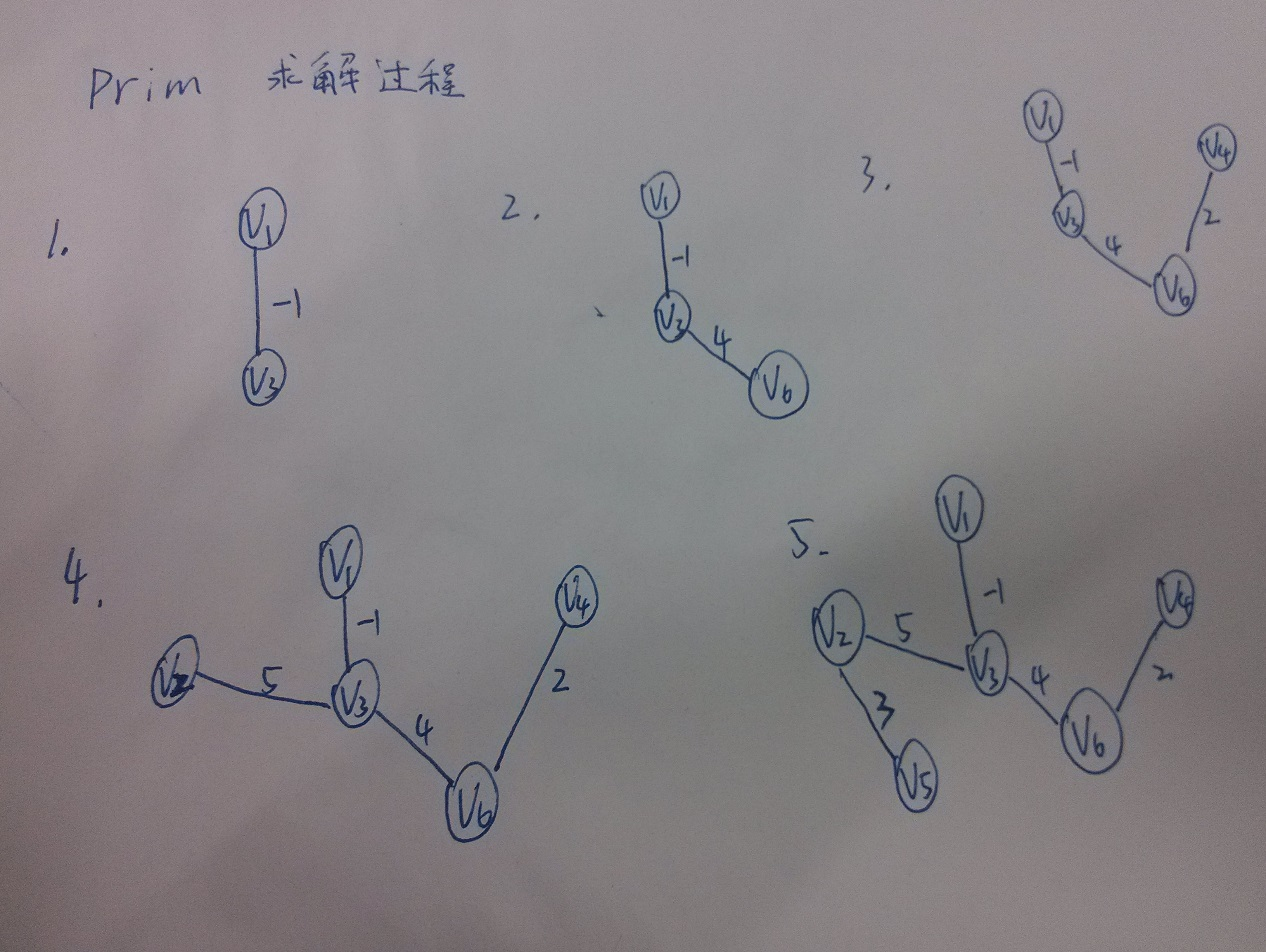 Prim 求解过程
1.
V1
-1
V3
2.
V1
-1
V3
4
V6
3.
V1
-1
V3
4
V6
2
V4
4.
V1
-1
V2
5
V3
4
V6
2
V4
5.
V1
-1
V2
5
V3
4
V6
2
V4
3
V5